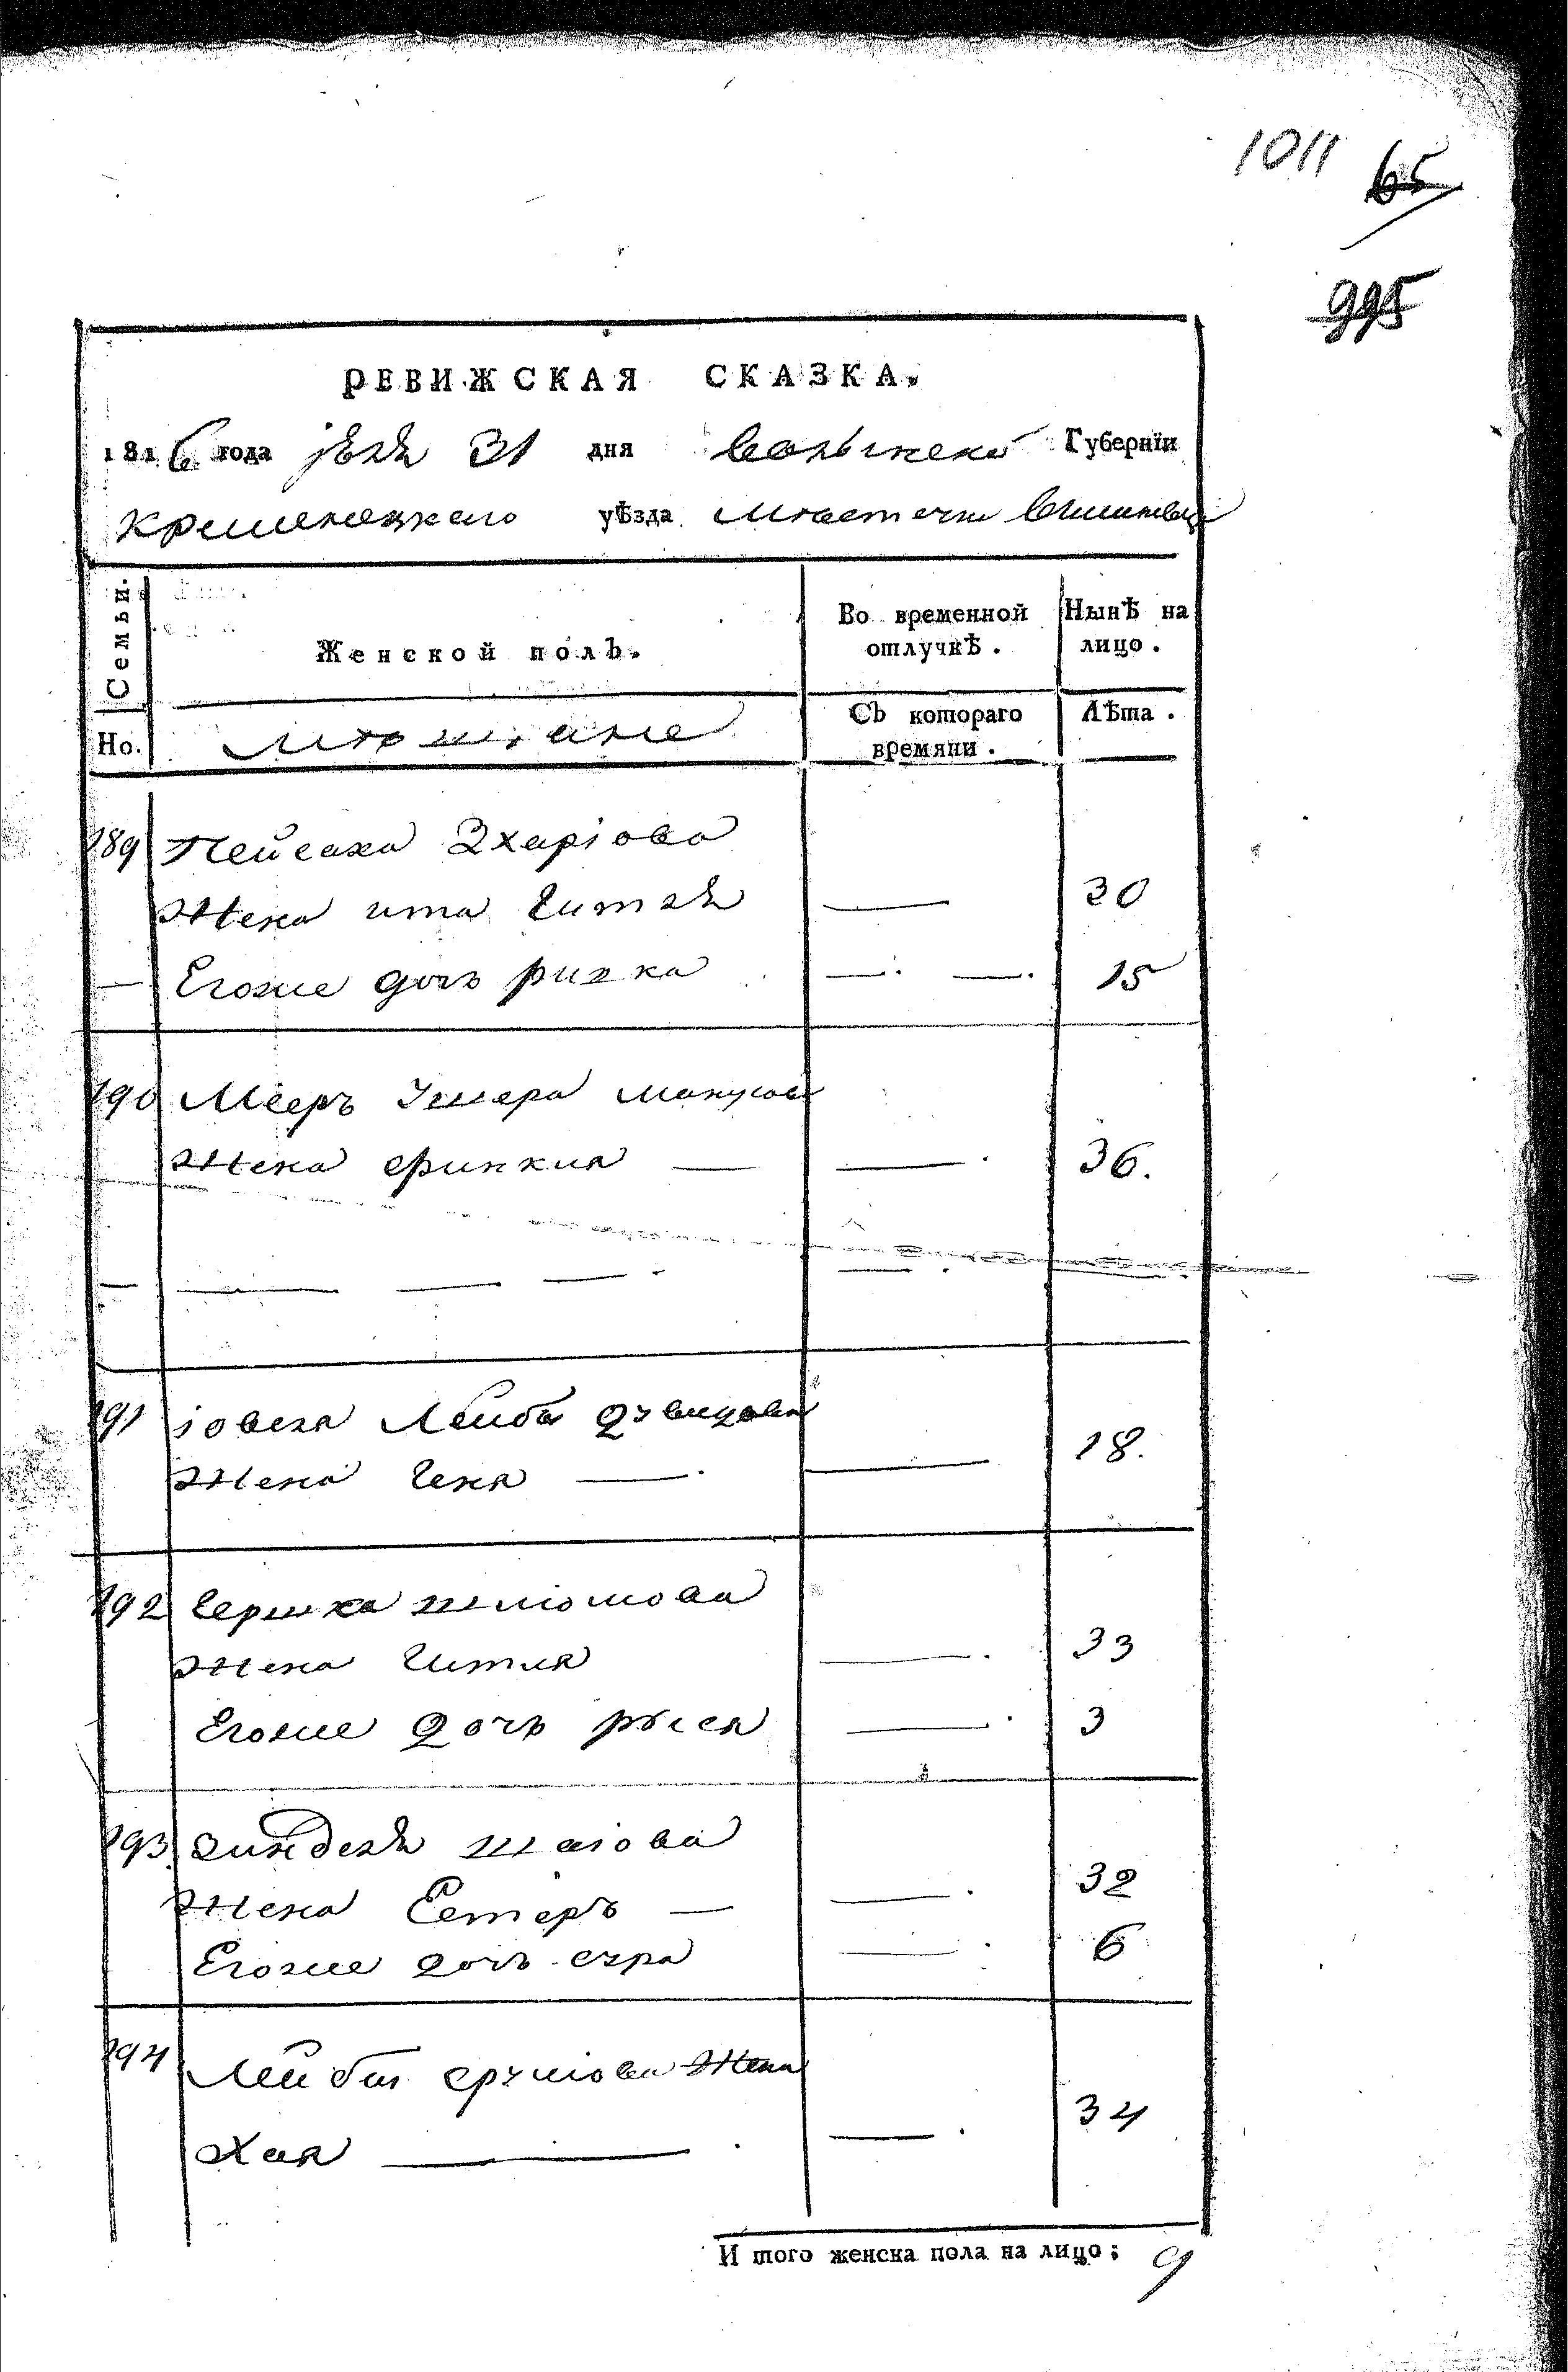 1011
65
995
РЕВИЖСКАЯ СКАЗКА.
1816 года Юля 31 дня Волынской Губернїи
Кременецкаго уѣзда местечка Вишневца
Семьи.
Женской полъ.
Во временной отлучкѣ.
Нынѣ на лицо.
Но.
мющане
Съ котораго времяни.
Лѣта.
189 Пейсаха Зхарiова
Жена ита Гитля 30
— Егоже дочь ривка — — 15
190 Мееръ Умера Манусов
Жена Фрикия — — 36.
191 iовеля Лейбы
Жена Геня — — 18.
192 Гершка шлiомова
Жена Гитля — 33
Егоже дочь рыся — 3
193 зинделя шаiова
Жена Естеръ — — 32
Егоже дочь сура — 6
194 Лейбы срулiова Жена
Хая — — 34
И того женска пола на лицо: 9